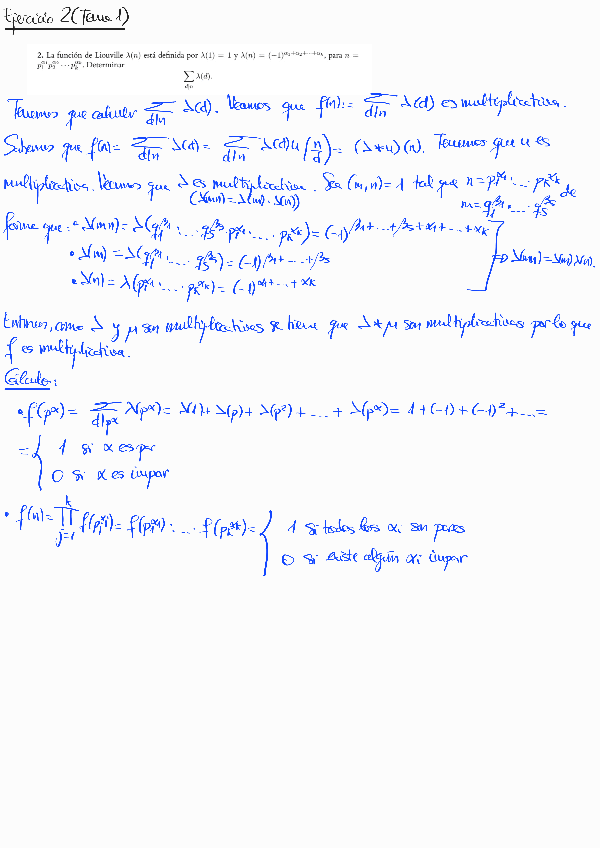 Ejercicio 2 (Tema 1)
2. La función de Liouville λ(n) está definida por λ(1) = 1 y λ(n) = (−1)^{α₁+α₂+⋯+αₖ}, para n =
p₁^{α₁} p₂^{α₂} ⋯ pₖ^{αₖ}. Determinar
∑_{d|n} λ(d).
Tenemos que calcular ∑_{d|n} λ(d). Veamos que f(n) := ∑_{d|n} λ(d) es multiplicativa.
Sabemos que f(n) = ∑_{d|n} λ(d) = ∑_{d|n} λ(d) u(n/d) = (λ * u)(n). Tenemos que u es
multiplicativa. Veamos que λ es multiplicativa. Sea (m,n) = 1 tal que n = p₁^{α₁} · … · pₖ^{αₖ} de
(λ(mn) = λ(m) · λ(n)) m = q₁^{β₁} · … · qₛ^{βₛ}
forma que: • λ(mn) = λ(q₁^{β₁} · … · qₛ^{βₛ} p₁^{α₁} · … · pₖ^{αₖ}) = (−1)^{β₁+…+βₛ+α₁+…+αₖ}
• λ(m) = λ(q₁^{β₁} · … · qₛ^{βₛ}) = (−1)^{β₁+…+βₛ} ⇒ λ(mn) = λ(m) λ(n).
• λ(n) = λ(p₁^{α₁} · … · pₖ^{αₖ}) = (−1)^{α₁+…+αₖ}
Entonces, como λ y μ son multiplicativas se tiene que λ * μ son multiplicativas por lo que
f es multiplicativa.
Cálculo:
• f(p^α) = ∑_{d|p^α} λ(p^α) = λ(1) + λ(p) + λ(p²) + … + λ(p^α) = 1 + (−1) + (−1)² + … =
= { 1 si α es par
0 si α es impar
• f(n) = ∏_{j=1}^{k} f(p_i^{α_i}) = f(p₁^{α₁}) · … · f(pₖ^{αₖ}) = { 1 si todos los α_i son pares
0 si existe algún α_i impar